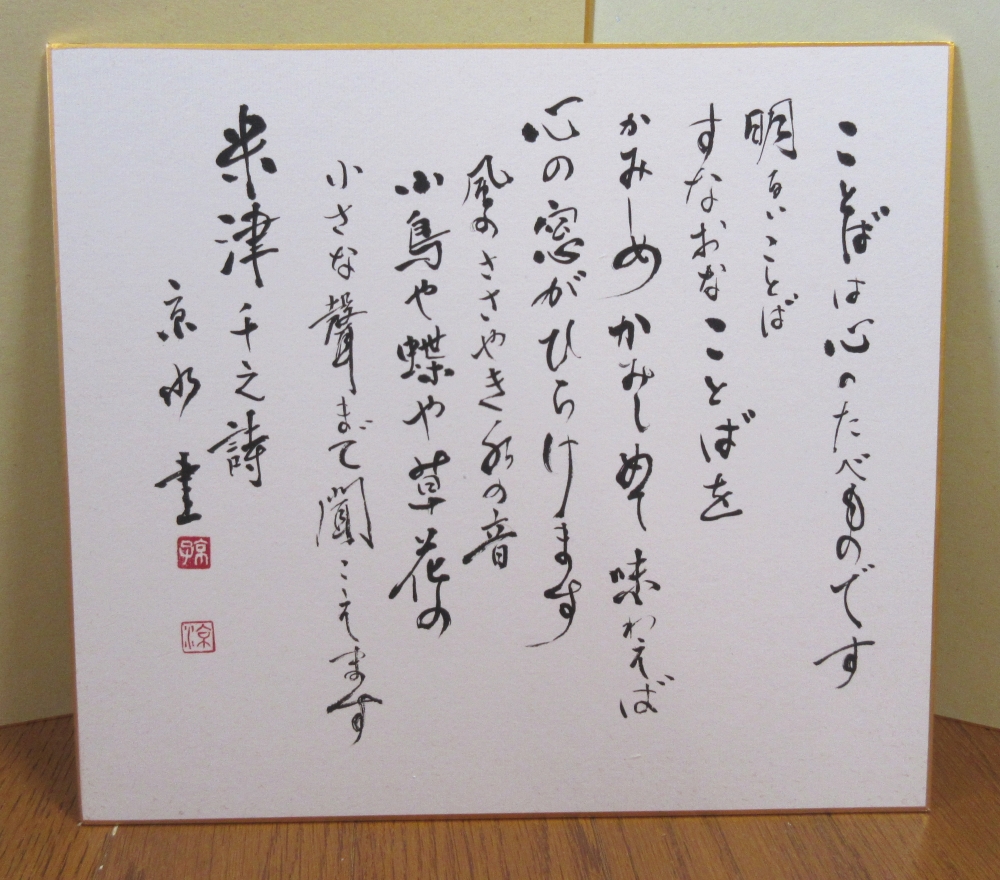 ことばは心のたべものです
明るいことば
すなおなことばを
かみしめかみしめて味わえば
心の窓がひらけます
風のささやき水の音
小鳥や蝶や草花の
小さな聲まで聞こえます
米津千之詩
京水書